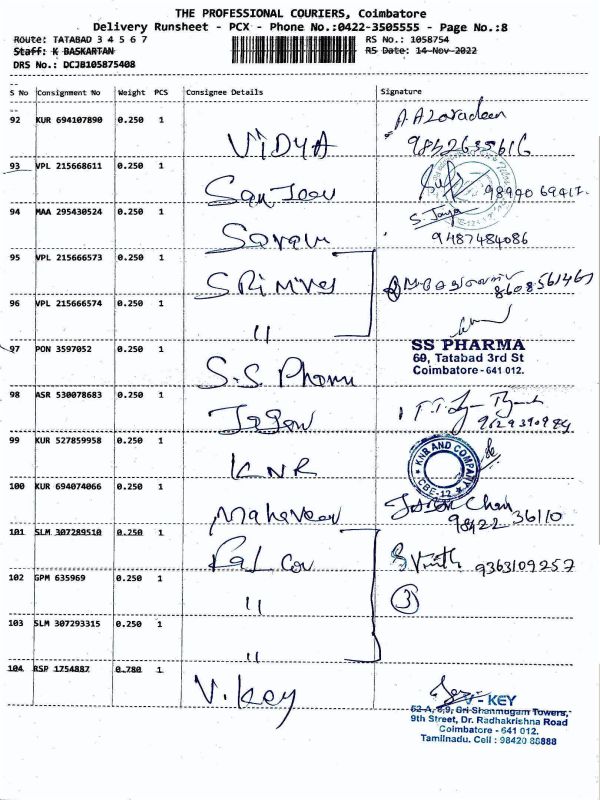 THE PROFESSIONAL COURIERS, Coimbatore
Delivery Runsheet - PCX - Phone No.:0422-3505555 - Page No.:8
Route: TATABAD 3 4 5 6 7
RS No.: 1058754
Staff: K BASKARTAN
RS Date: 14-Nov-2022
DRS No.: DCJB105875408
S No Consignment No Weight PCS Consignee Details Signature
92 KUR 694107890 0.250 1 VIDYA
93 VPL 215668611 0.250 1
94 MAA 295430524 0.250 1
9487484086
95 VPL 215666573 0.250 1
8608561467
96 VPL 215666574 0.250 1 "
97 PON 3597052 0.250 1 S.S. Pharm
SS PHARMA
69, Tatabad 3rd St
Coimbatore - 641 012.
98 ASR 530078683 0.250 1
99 KUR 527859958 0.250 1 KNR
KNR AND COMPANY
CBE-12
100 KUR 694074066 0.250 1 Mahaveer
98422 36110
101 SLM 307289510 0.250 1
9363109257
102 GPM 635969 0.250 1 "
3
103 SLM 307293315 0.250 1 "
104 RSP 1754887 0.780 1 V. Key
V - KEY
62-A, 8,9, Sri Shanmugam Towers,
9th Street, Dr. Radhakrishna Road
Coimbatore - 641 012.
Tamilnadu. Cell : 98420 88888